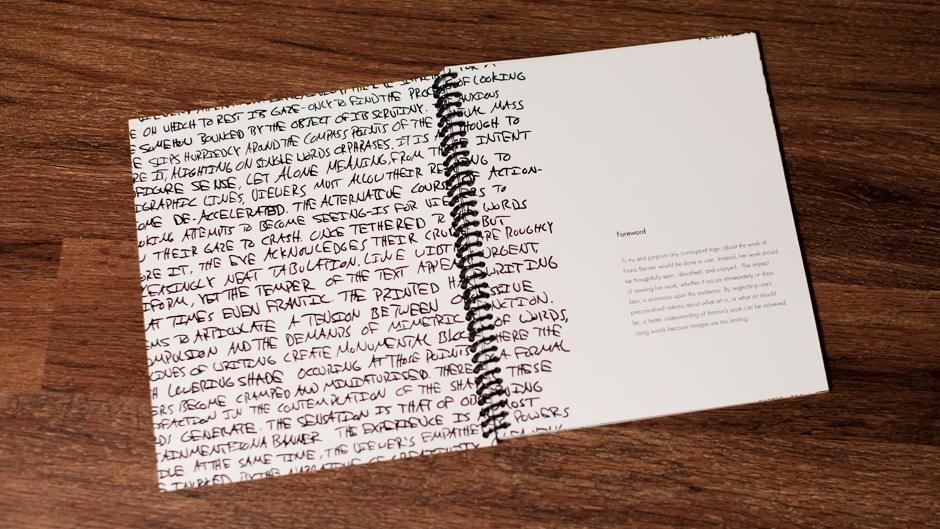 ON WHICH TO REST ITS GAZE-ONLY TO FIND THE OF LOOKING
SOMEHOW BOUNCED BY THE OBJECT OF ITS SCRUTINY. ANXIOUS
SLIPS HURRIEDLY AROUND THE COMPASS POINTS OF THE MASS
RE IT, ALIGHTING ON SINGLE WORDS OR PHRASES. IT IS THOUGH TO
FIGURE SENSE, LET ALONE MEANING, FROM INTENT
GRAPHIC LINES, VIEWERS MUST ALLOW THEIR TO
OME DE-ACCELERATED. THE ALTERNATIVE COURSE OF ACTION-
OKING ATTEMPTS TO BECOME SEEING-IS FOR VIEWERS TO
THEIR GAZE TO CRASH. ONCE TETHERED TO WORDS
RE IT, THE EYE ACKNOWLEDGES THEIR BUT
EASINGLY NEAT TABULATION. LINE ARE ROUGHLY
IFORM, YET THE TEMPER OF THE TEXT URGENT
AT TIMES EVEN FRANTIC. THE PRINTED WRITING
MS TO ARTICULATE A TENSION BETWEEN SSIVE
MPULSION AND THE DEMANDS OF MIMETRIC NCTION.
INES OF WRITING CREATE MONUMENTAL OF WORDS,
LOWERING SHADE OCCURING AT THOSE POINTS HERE THE
RS BECOME CRAMPED AND MINIATURISED. THERE A FORMAL
SFACTION IN THE CONTEMPLATION OF THE THESE
DS GENERATE. THE SENSATION IS THAT OF
AINMENT FIONA BANNER THE EXPERIENCE IS MOST
DLE AT THE SAME TIME, THE VIEWER'S POWERS
BY THE NARRATIVE OF CREATIVITY
Foreword
To try and pinpoint any conceptual logic about the work of
Fiona Banner would be done in vain. Instead, her work should
be thoughtfully seen, absorbed, and enjoyed. The impact
of viewing her work, whether it occurs immediately or days
later, is enormous upon the audience. By neglecting one's
preconceived notions about what art is, or what art should
be, a better understanding of Banner's work can be achieved.
Using words because images are too limiting.